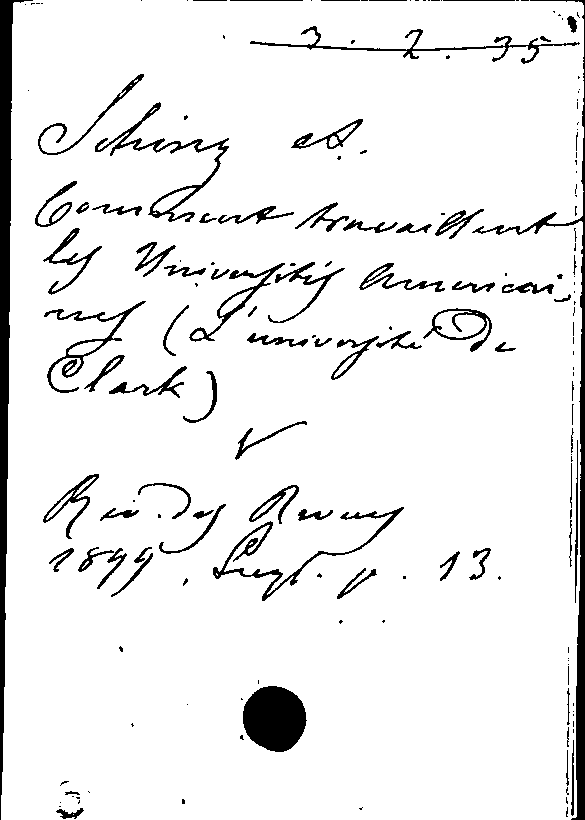 3. 2. 35
Schinz A.
Comment travaillent
les Universités Americai-
nes (L'université De
Clark)
V
Rev. des Revues
1899, Sept. p. 13.